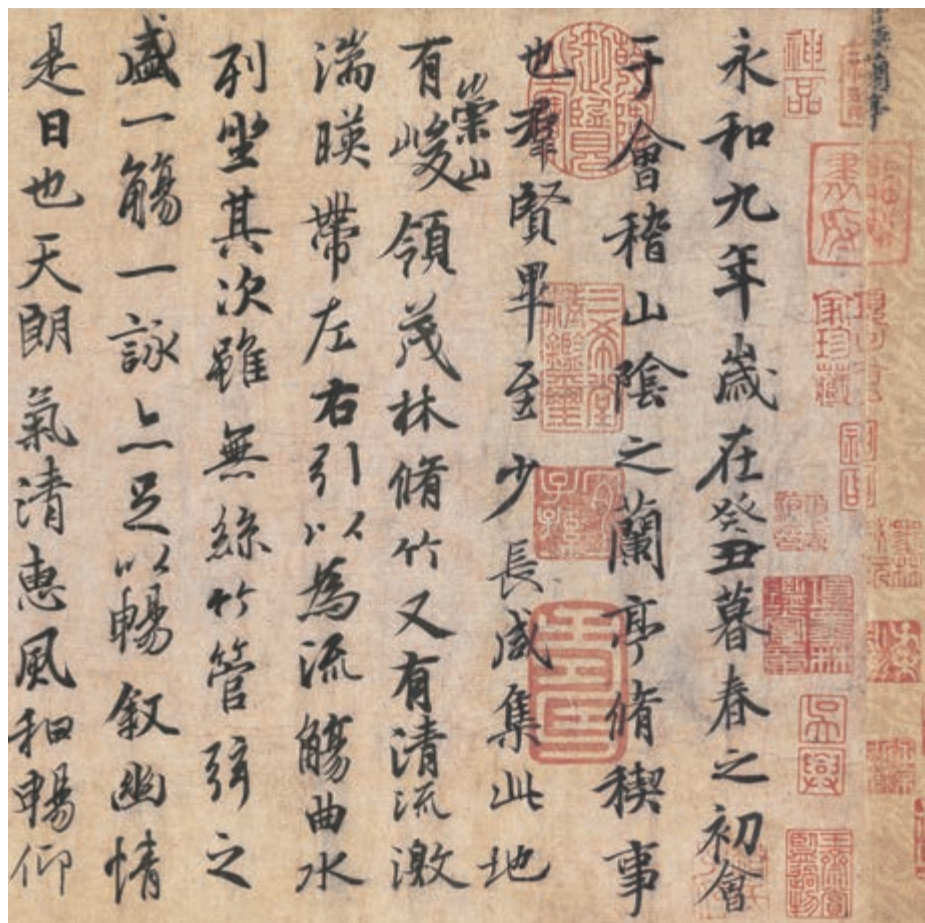 神品
家珍藏
吳興
永和九年歲在癸丑暮春之初會
于會稽山陰之蘭亭脩稧事
也羣賢畢至少長咸集此地
三希堂精鑑璽
宜子孫
有崇山峻領茂林脩竹又有清流激
湍暎帶左右引以為流觴曲水
列坐其次雖無絲竹管弦之
盛一觴一詠亦足以暢敘幽情
是日也天朗氣清惠風和暢仰